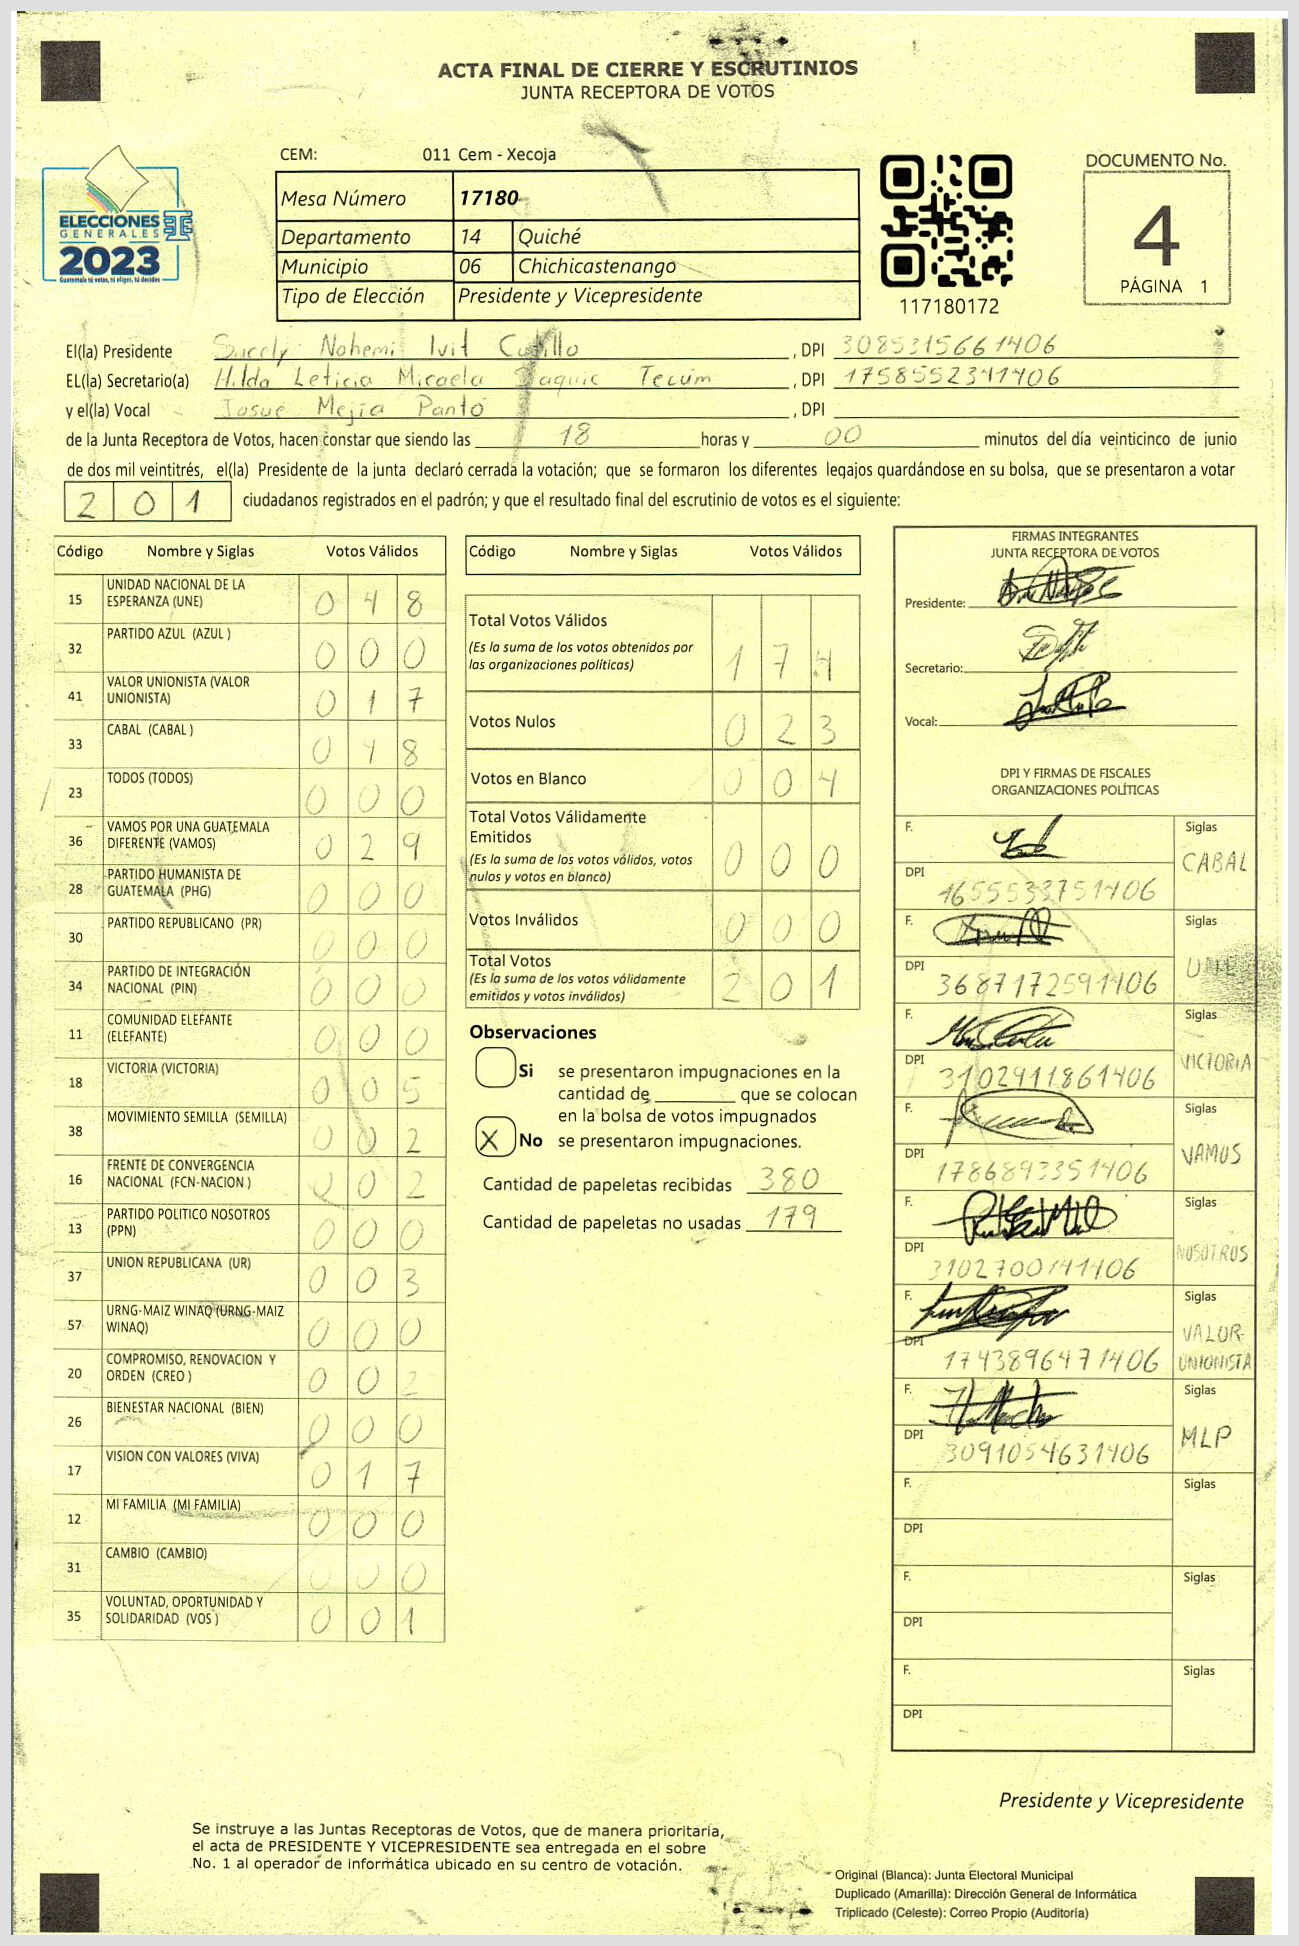 ACTA FINAL DE CIERRE Y ESCRUTINIOS
JUNTA RECEPTORA DE VOTOS
CEM: 011 Cem - Xecoja
Mesa Número 17180
Departamento 14 Quiché
Municipio 06 Chichicastenango
Tipo de Elección Presidente y Vicepresidente
ELECCIONES
GENERALES
2023
Guatemala tú votas, tú eliges, tú decides
117180172
DOCUMENTO No.
4
PÁGINA 1
El(la) Presidente Nohemi , DPI 3085315661406
EL(la) Secretario(a) Hilda Leticia Micaela Tecúm , DPI 1758552341406
y el(la) Vocal Josue Mejía Pantó , DPI
de la Junta Receptora de Votos, hacen constar que siendo las 18 horas y 00 minutos del día veinticinco de junio
de dos mil veintitrés, el(la) Presidente de la junta declaró cerrada la votación; que se formaron los diferentes legajos quardándose en su bolsa, que se presentaron a votar
201 ciudadanos registrados en el padrón; y que el resultado final del escrutinio de votos es el siguiente:
Código Nombre y Siglas Votos Válidos
15 UNIDAD NACIONAL DE LA ESPERANZA (UNE) 0 4 8
32 PARTIDO AZUL (AZUL ) 0 0 0
41 VALOR UNIONISTA (VALOR UNIONISTA) 0 1 7
33 CABAL (CABAL ) 0 4 8
23 TODOS (TODOS) 0 0 0
36 VAMOS POR UNA GUATEMALA DIFERENTE (VAMOS) 0 2 9
28 PARTIDO HUMANISTA DE GUATEMALA (PHG) 0 0 0
30 PARTIDO REPUBLICANO (PR) 0 0 0
34 PARTIDO DE INTEGRACIÓN NACIONAL (PIN) 0 0 0
11 COMUNIDAD ELEFANTE (ELEFANTE) 0 0 0
18 VICTORIA (VICTORIA) 0 0 5
38 MOVIMIENTO SEMILLA (SEMILLA) 0 0 2
16 FRENTE DE CONVERGENCIA NACIONAL (FCN-NACION ) 0 0 2
13 PARTIDO POLITICO NOSOTROS (PPN) 0 0 0
37 UNION REPUBLICANA (UR) 0 0 3
57 URNG-MAIZ WINAQ (URNG-MAIZ WINAQ) 0 0 0
20 COMPROMISO, RENOVACION Y ORDEN (CREO ) 0 0 2
26 BIENESTAR NACIONAL (BIEN) 0 0 0
17 VISION CON VALORES (VIVA) 0 1 7
12 MI FAMILIA (MI FAMILIA) 0 0 0
31 CAMBIO (CAMBIO) 0 0 0
35 VOLUNTAD, OPORTUNIDAD Y SOLIDARIDAD (VOS ) 0 0 1
Código Nombre y Siglas Votos Válidos
Total Votos Válidos 1 7 4
(Es la suma de los votos obtenidos por
las organizaciones políticas)
Votos Nulos 0 2 3
Votos en Blanco 0 0 4
Total Votos Válidamente
Emitidos 0 0 0
(Es la suma de los votos válidos, votos
nulos y votos en blanco)
Votos Inválidos 0 0 0
Total Votos 2 0 1
(Es la suma de los votos válidamente
emitidos y votos inválidos)
Observaciones
Si se presentaron impugnaciones en la
cantidad de que se colocan
en la bolsa de votos impugnados
X No se presentaron impugnaciones.
Cantidad de papeletas recibidas 380
Cantidad de papeletas no usadas 179
FIRMAS INTEGRANTES
JUNTA RECEPTORA DE VOTOS
Presidente:
Secretario:
Vocal:
DPI Y FIRMAS DE FISCALES
ORGANIZACIONES POLÍTICAS
F. Siglas CABAL
DPI 1655533751406
F. Siglas UNE
DPI 3687172591406
F. Siglas VICTORIA
DPI 3102911861406
F. Siglas VAMOS
DPI 1786893351406
F. Siglas NOSOTROS
DPI 3102700141406
F. Siglas VALOR-UNIONISTA
DPI 1743896471406
F. Siglas MLP
DPI 3091054631406
F. Siglas
DPI
F. Siglas
DPI
F. Siglas
DPI
Presidente y Vicepresidente
Se instruye a las Juntas Receptoras de Votos, que de manera prioritaria,
el acta de PRESIDENTE Y VICEPRESIDENTE sea entregada en el sobre
No. 1 al operador de informática ubicado en su centro de votación.
Original (Blanca): Junta Electoral Municipal
Duplicado (Amarilla): Dirección General de Informática
Triplicado (Celeste): Correo Propio (Auditoría)